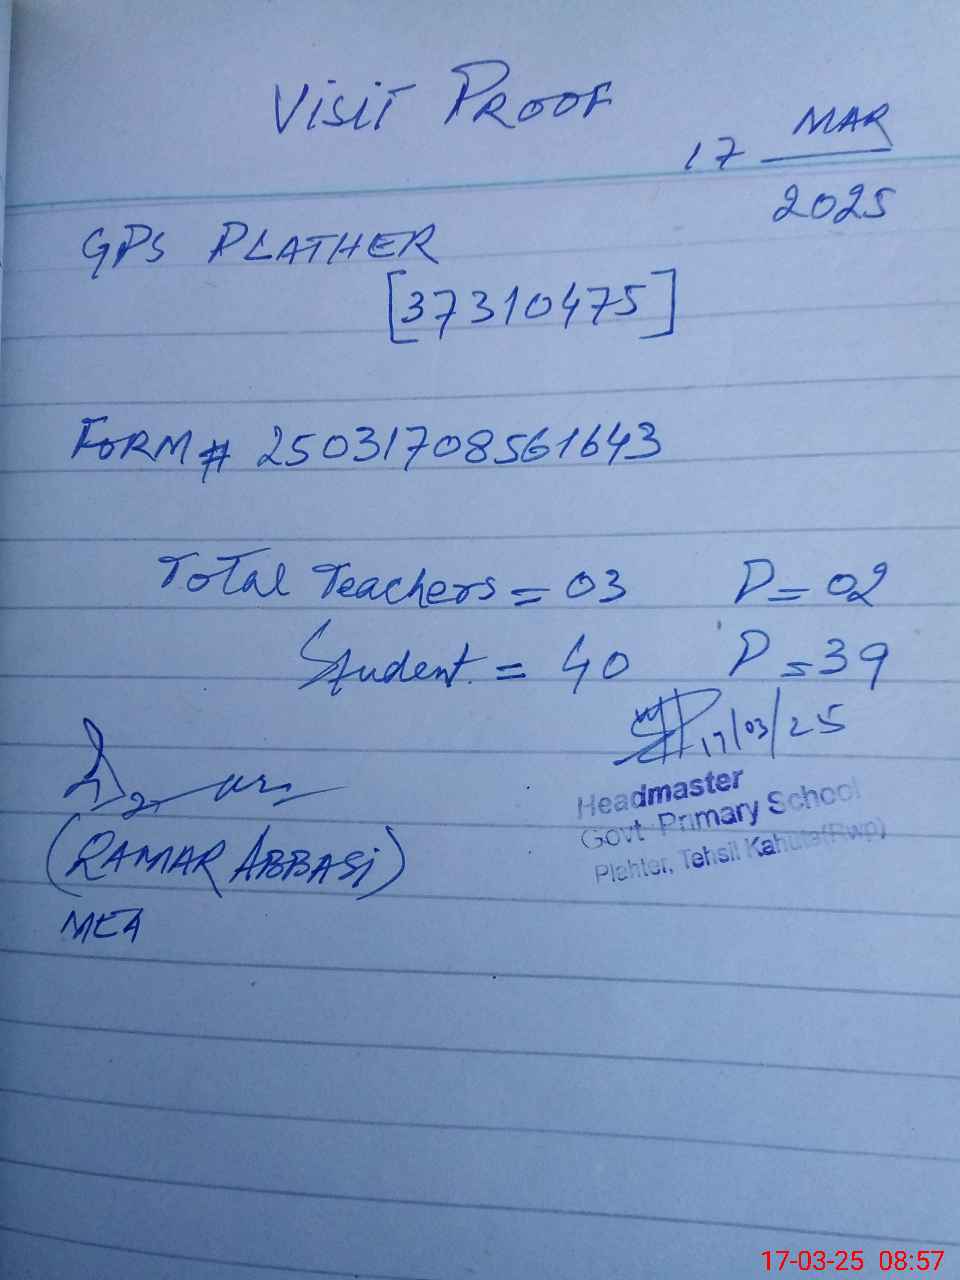 Visit Proof
17 MAR
2025
GPS PLATHER
[37310475]
Form # 25031708561643
Total Teachers = 03 P = 02
Student = 40 P = 39
17/03/25
Headmaster
Govt Primary School
Plahter, Tehsil Kahuta(Rwp)
(QAMAR ABBASi)
MEA
17-03-25 08:57